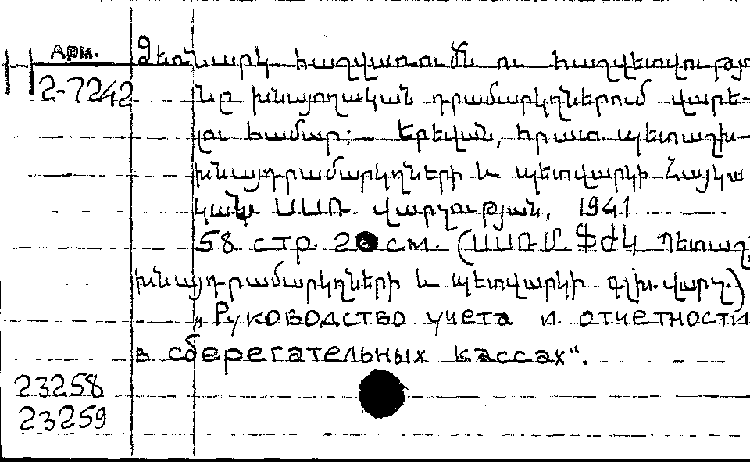 Арм.
2-7242
Ձեռնարկ հաշվառումն ու հաշվետվությու
նը խնայողական դրամարկղներում վարե-
լու համար: Երեվան, հրատ. պետաշխ-
խնայդրամարկղների և պետվարկի Հայկա
կան ՍՍՌ վարչության, 1941
58 стр 20 см. (ՍՍՌՄ ՖԺԿ Պետաշխ
խնայդրամարկղների և պետվարկի գլխ. վարչ.)
„Руководство учета и отчетности
в сберегательных кассах".
23258
23259